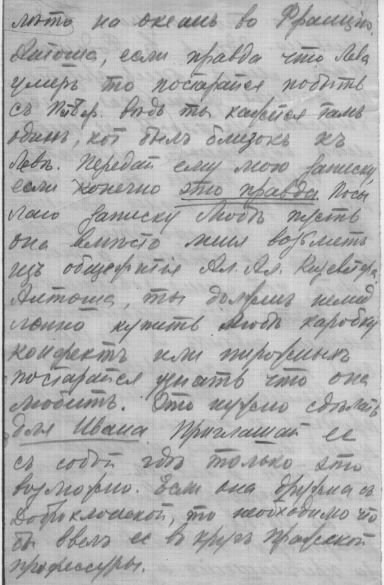 лѣто на океанъ во Францiю.
Антоша, если правда что Лева
умеръ то постарайся побыть
съ вѣдь ты кажется тамъ
одинъ, кот былъ близокъ къ
Левѣ. Передай ему мою записку,
если конечно это правда. Посы
лаю записку Любѣ пусть
она вмѣсто меня возьметъ
изъ общежитья Ал. Ал.
Антоша, ты долженъ немед
ленно купить Любѣ коробку
конфектъ или пирожныхъ
постарайся узнать что она
любитъ. Это нужно сдѣлать
для Ивана Приглашай ее
съ собой гдѣ только это
возможно. Если она дружна съ
Доброклонской, то необходимо что
бы ввелъ ее въ кругъ Пражской
профессуры.